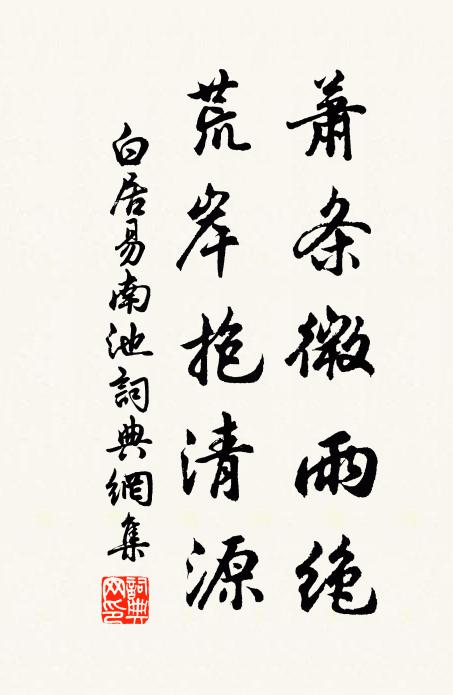 蕭条微雨絶
荒岸抱清源
白居易南池詞典網集
詞典网印